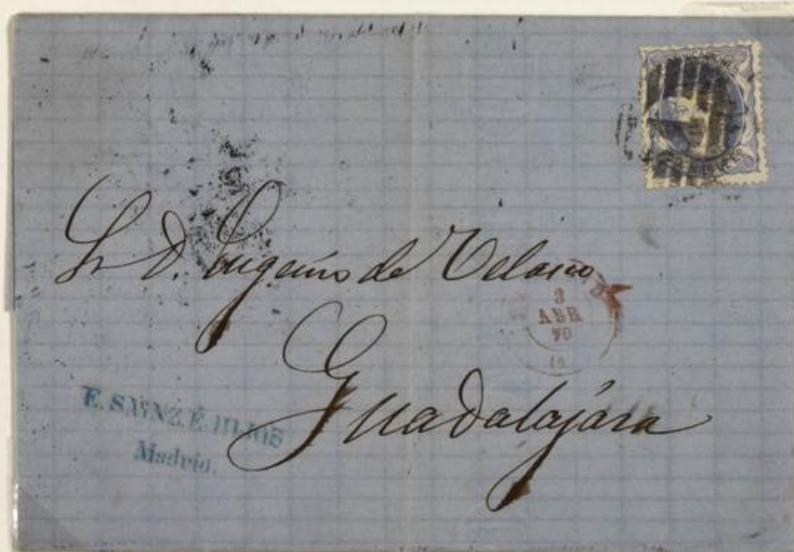 Sr D. Eugenio de Velasco
3
ABR
70
Guadalajara
E. SAINZ É HIJOS
Madrid.